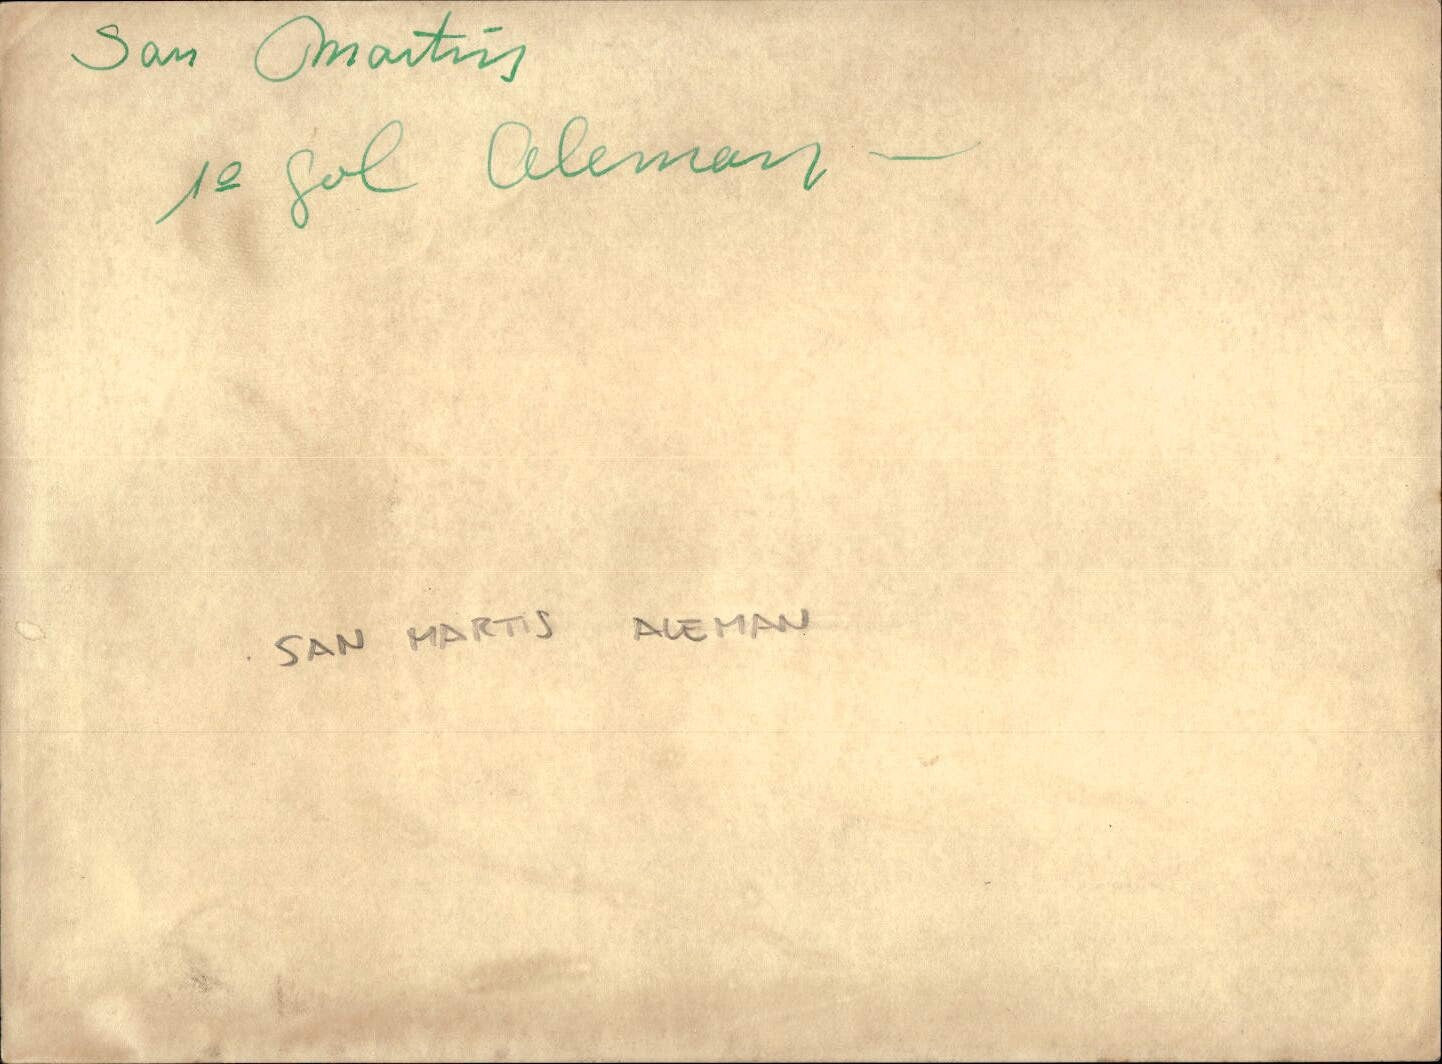 San Martín
1º gol Aleman —
SAN MARTIS ALEMAN